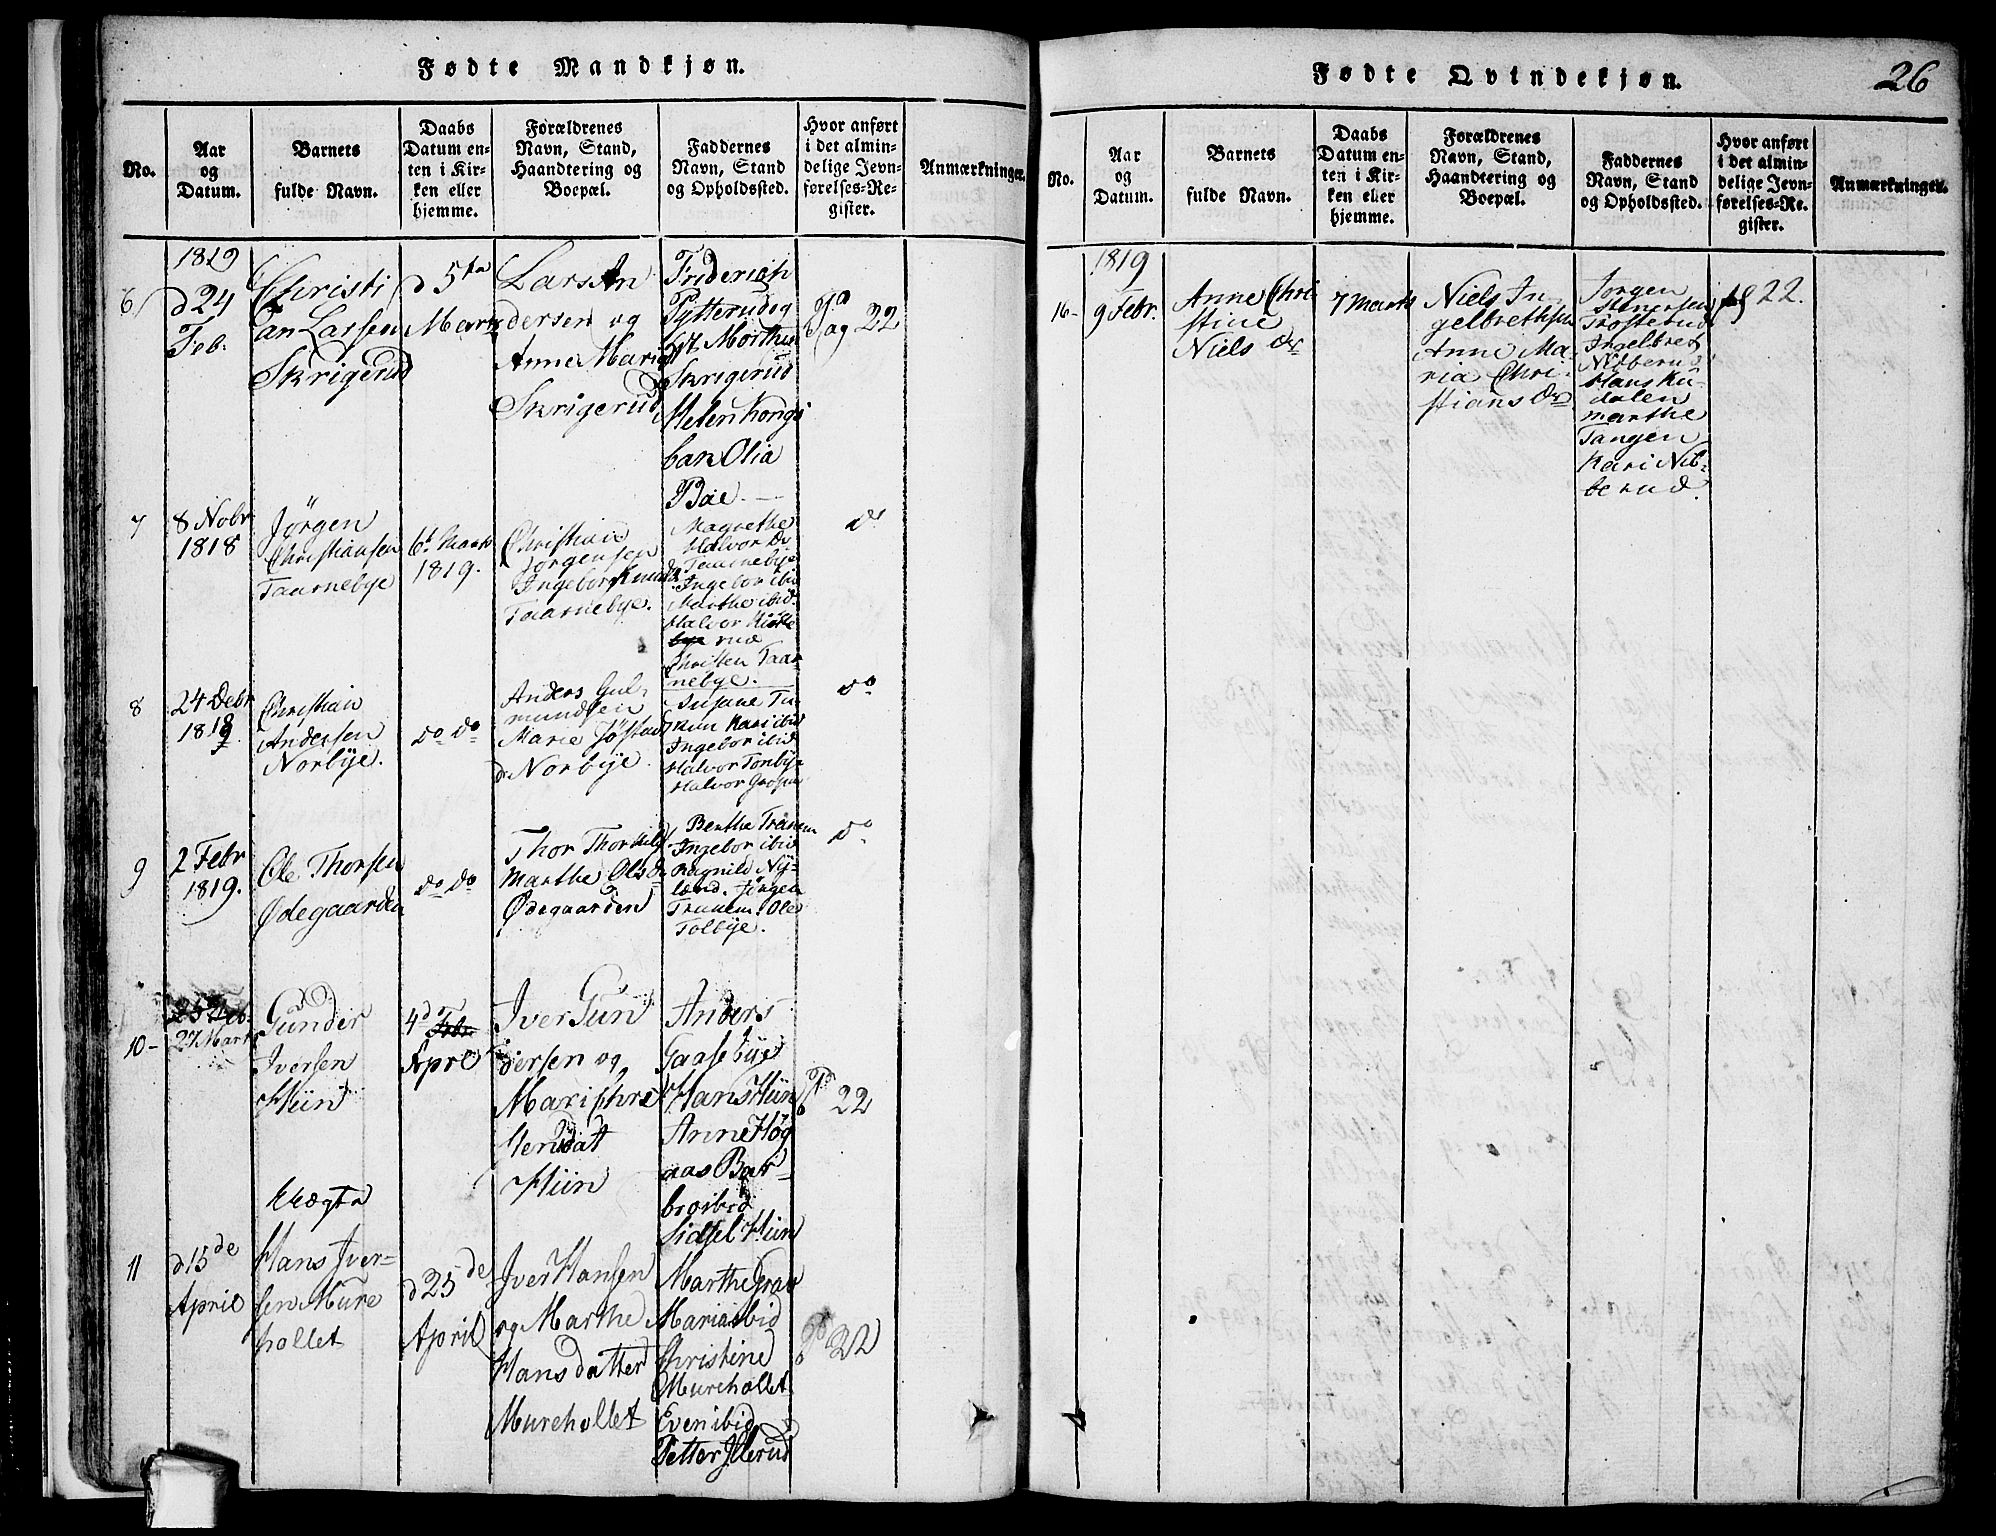 Fødte Mandkjøn.
No.
Aar
og
Datum.
Barnets
fulde Navn.
Daabs
Datum en-
ten i Kir-
ken eller
hjemme.
Forældrenes
Navn, Stand,
Haandtering og
Boepæl.
Faddernes
Navn, Stand
og Opholdssted.
Hvor anført
i det almin-
delige Jevn-
førelses-Re-
gister.
Anmærkninger.
6
1819
d 24
Feb.
Christi
an Larsen
Skrigerud
d 5te
Marts
Lars An
dersen og
Anne Marie
Skrigerud
Friderich
Pytterudeg
Morthen
Skrigerud
Helen Kongs
bak Olia
Boe.
Pag 22
7
8 Nobr
1818
Jørgen
Christiansen
Taarnebye
6t Marts
1819.
Christian
Jørgensen
Ingebor Knuds
Taarnebye.
Magrethe
Halvor
Taarnebye
Ingebor ibid
Marthe ibid.
Halvor Kirke
bye rud
Christen Taar
nebye.
do
8
24 Debr
1818
Christian
Andersen
Norbye.
do do
Anders Gul-
mundsen
Marie Jøstad
Norbye.
Susane
Kari ibid
Ingebor ibid
Halvor Tonbye
Halvor
do
9
2 Febr
1819.
Ole Thorsen
Ødegaarden
do do
Thor Thorkels
Marthe Olsdr
Ødegaarden
Berthe Tranem
Ingebor ibid
Ragnild Ny-
land. Jørgen
Tranem. Ole
Tolbye.
do
10-
25 Feb.
27 Marts
Gunder
Iversen
Hiin
4d Febr
Apre
Iver Gun
dersen og
Mari Chri
Hiin
Anders
Gaasebye
Hans Hiin
Anne Høg
aas Bar-
bro ibid
Sidsel Hiin
Pag 22
Uægte
11
d 15de
April
Hans Iver-
sen Mure
hollet
d 25de
April
Iver Hansen
og Marthe
Hans datter
Murehollet
Marthe Grav
Maria ibid
Christine
Murehollet
Even ibid
Petter Illerud
Pag 22
Fødte Qvindekjøn.
26
No.
Aar
og
Datum.
Barnets
fulde Navn.
Daabs
Datum en-
ten i Kir-
ken eller
hjemme.
Forældrenes
Navn, Stand,
Haandtering og
Boepæl.
Faddernes
Navn, Stand
og Opholdssted.
Hvor anført
i det almin-
delige Jevn-
førelses-Re-
gister.
Anmærkninger.
16-
1819
9 Febr.
Anne Chri
stine
Niels dr
7 Marts
Niels In-
gelbrethsen
Anne Ma-
ria Chri-
stians dr
Jørgen
Stenersen
Trosterud
Ingelbret
Nibberud
Hans Ku-
dalen
Marthe
Tangen
Kari Nib-
berud.
pag 22.